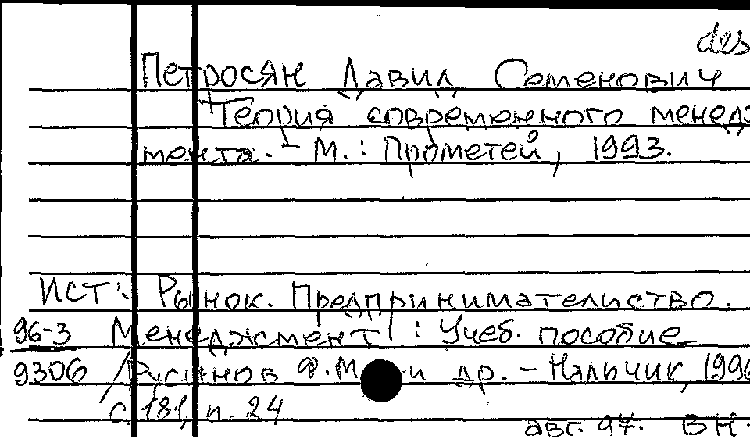 des
Петросян Давид Семенович
Теория современного менедж
мента. – М.: Прометей, 1993.
Ист.: Рынок. Предпринимательство.
96-3 Менеджмент: Учеб. пособие
9306 /Русанов Ф.М. и др. – Нальчик, 1996
с. 181, п. 24
авг. 97. ВН.